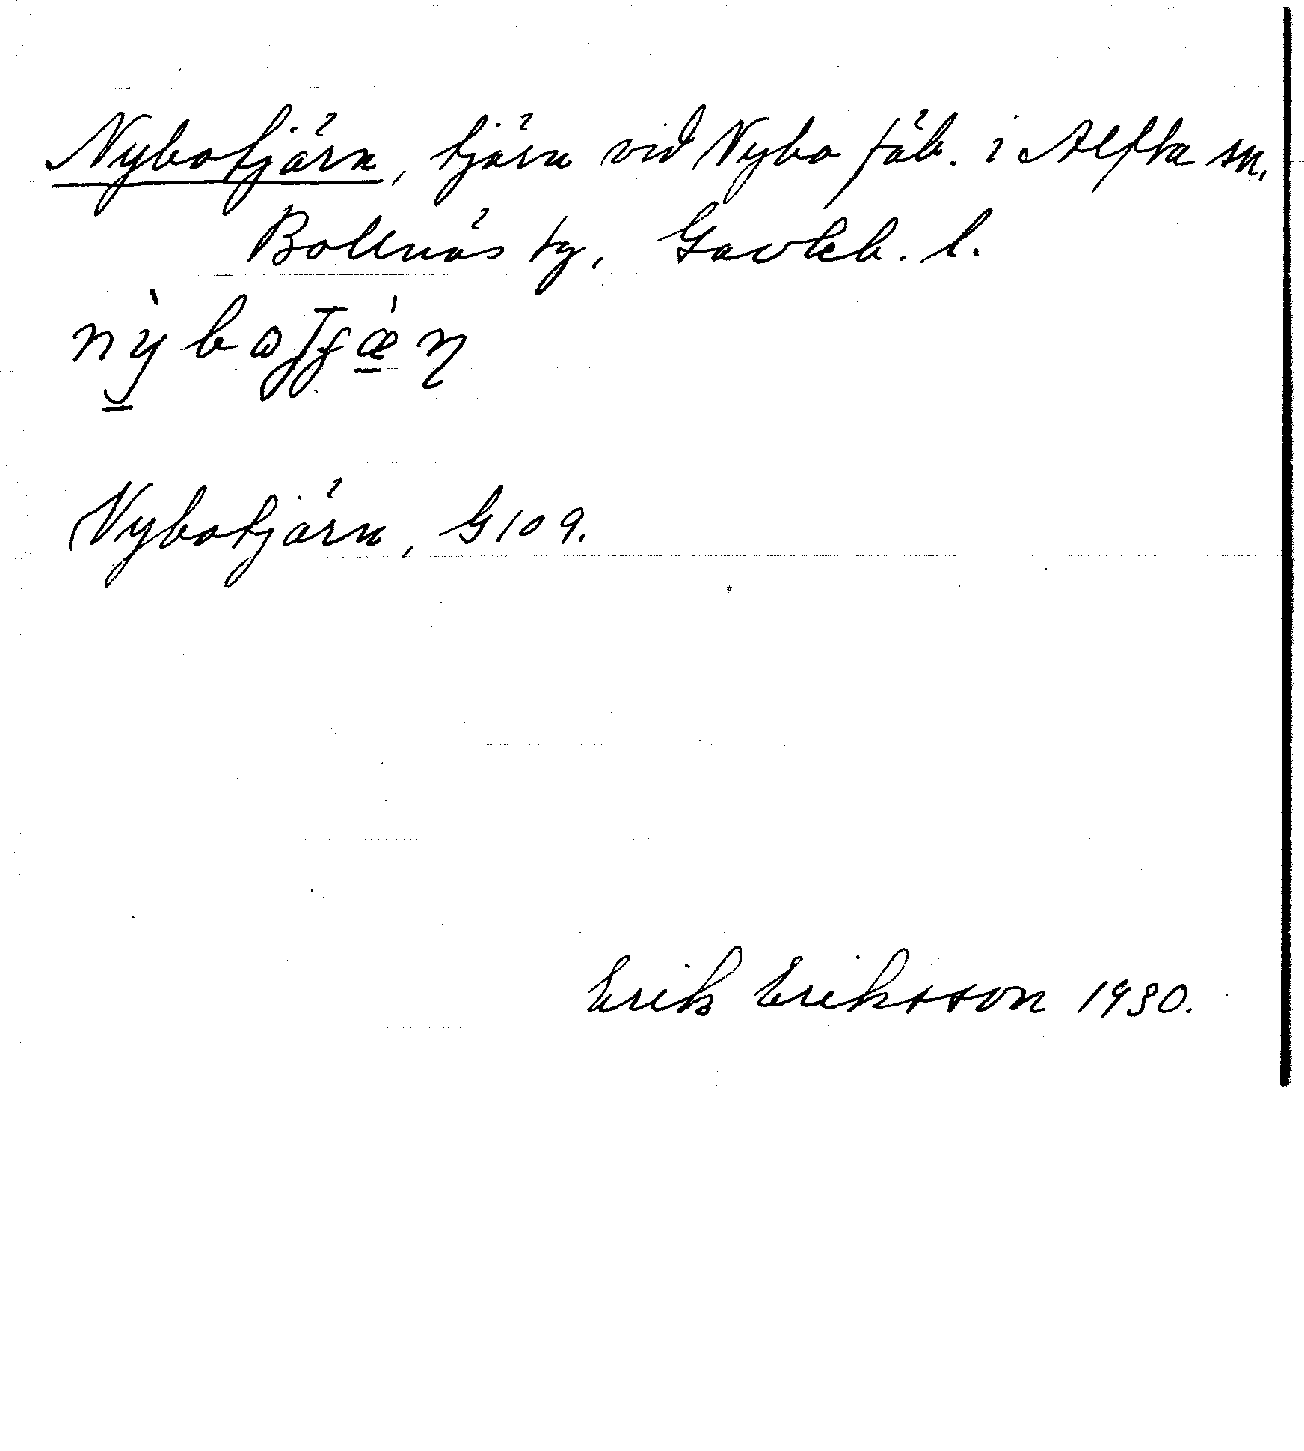 Nybotjärn, tjärn vid Nybo fäb. i Alfta sn.
Bollnäs tg, Gävleb. l.
Nybotjärn, G109.
Erik Eriksson 1930.